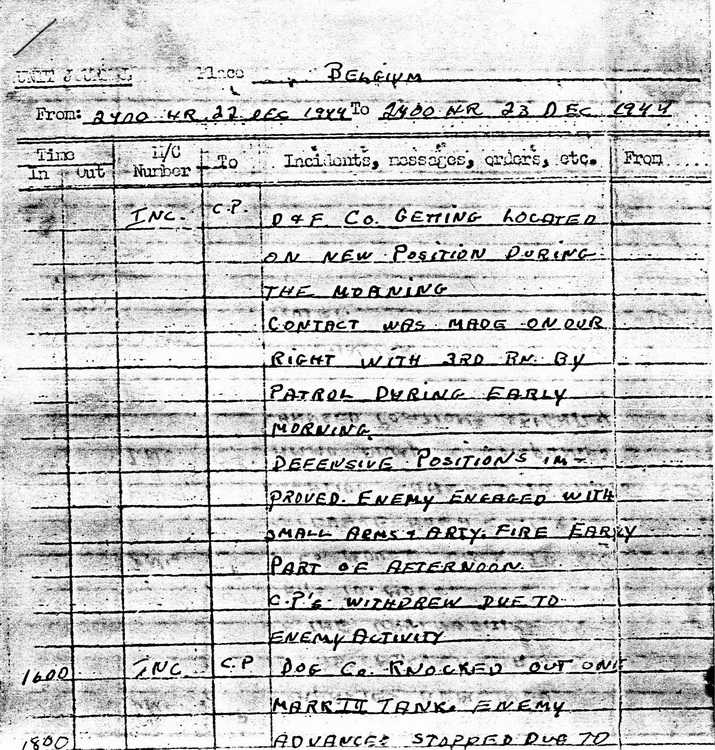 UNIT JOURNAL Place BELGIUM
From: 2400 HR 22 DEC 1944 To 2400 HR 23 DEC 1944
Time In Out M/C Number To Incidents, messages, orders, etc. From
INC. C.P. D & F CO. GETTING LOCATED
ON NEW POSITION DURING
THE MORNING
CONTACT WAS MADE ON OUR
RIGHT WITH 3RD BN. BY
PATROL DURING EARLY
MORNING.
DEFENSIVE POSITIONS IM-
PROVED. ENEMY ENGAGED WITH
SMALL ARMS & ARTY. FIRE EARLY
PART OF AFTERNOON.
C.P's WITHDREW DUE TO
ENEMY ACTIVITY
1600 INC C.P DOG CO. KNOCKED OUT ONE
MARK TANK. ENEMY
1800 ADVANCE STOPPED DUE TO